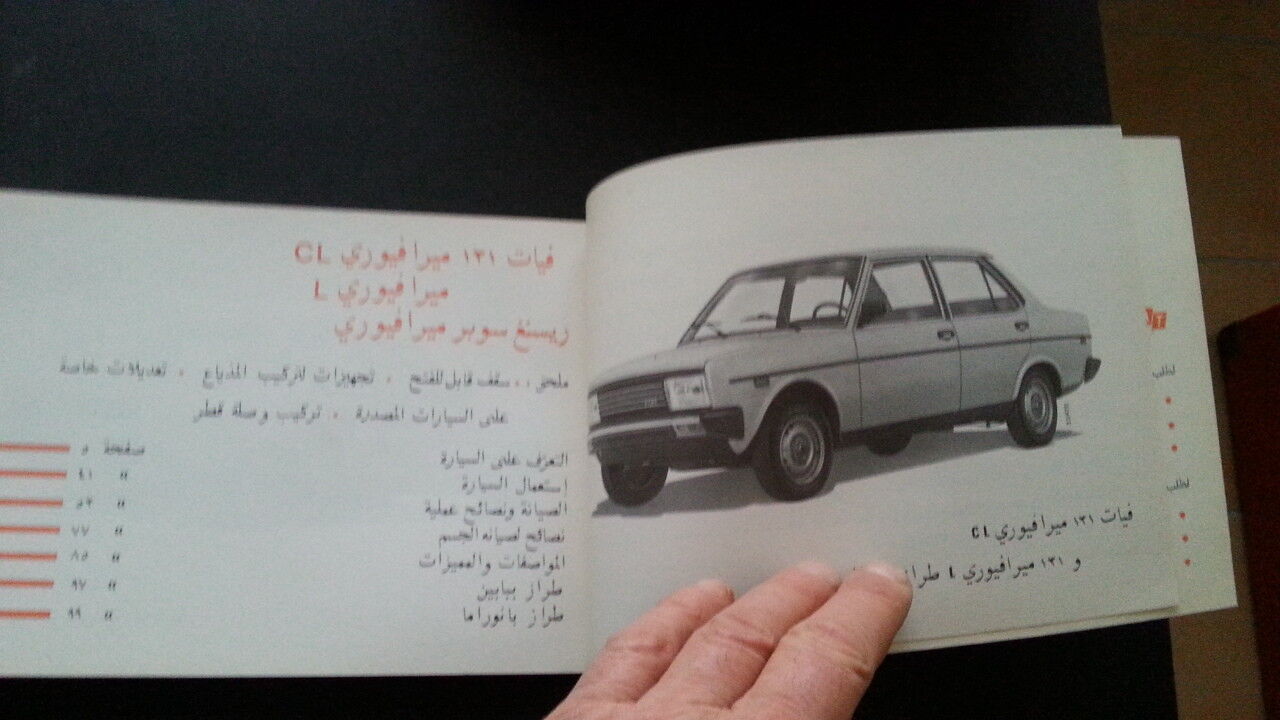 فيات ١٣١ ميرافيوري CL
ميرافيوري L
ريسنغ سوبر ميرافيوري
ملحق .. سقف قابل للفتح . تجهيزات لتركيب المذياع . تعديلات خاصة
على السيارات المصدرة . تركيب وصلة قطر
التعرف على السيارة صفحة ٥
إستعمال السيارة » ٤١
الصيانة ونصائح عملية » ٥٣
نصائح لصيانه الجسم » ٧٧
المواصفات والمميزات » ٨٥
طراز ببابين » ٩٧
طراز بانوراما » ٩٩
فيات ١٣١ ميرافيوري CL
و ١٣١ ميرافيوري L طراز
لطلب
لطلب